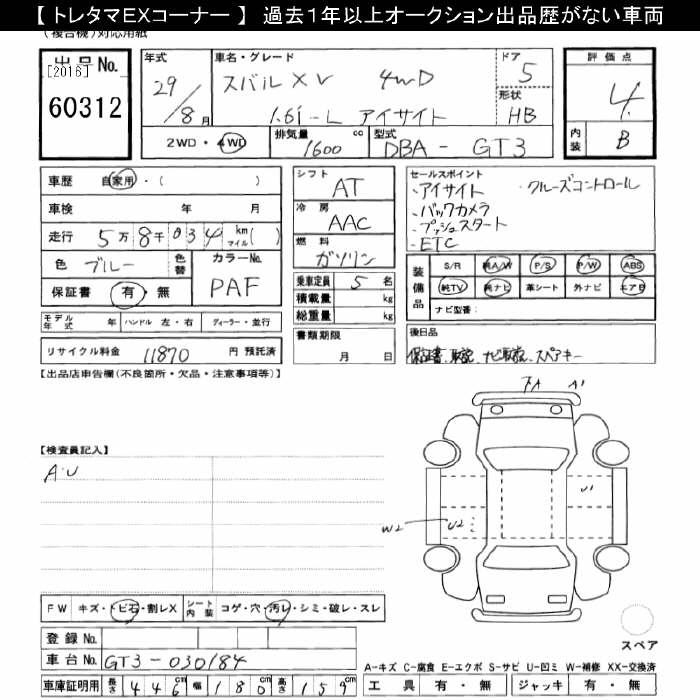 【 トレタマEXコーナー 】 過去1年以上オークション出品歴がない車両
(複合機)対応用紙
出 品 No.
[2016]
60312
年式
29/8月
車名・グレード
スバルXV 4WD
1.6i-L アイサイト
ドア
5
形状
HB
評 価 点
4
内装
B
2WD・4WD
排気量
1600 cc
型式
DBA - GT3
車歴 自家用・( )
車検 年 月
走行 5万8千034 km マイル( )
色 ブルー
色替
カラーNo.
PAF
保証書 有・無
シフト
AT
冷 房
AAC
燃 料
ガソリン
乗車定員 5 名
積載量 kg
総重量 kg
書類期限
月 日
セールスポイント
・アイサイト ・クルーズコントロール
・バックカメラ
・プッシュスタート
・ETC
装備品
S/R 純A/W P/S P/W ABS
純TV 純ナビ 革シート 外ナビ エアB
ナビ型番:
モデル年式 年 ハンドル 左・右 ディーラー・並行
リサイクル料金 11870 円 預託済
後日品
保証書、取説、ナビ取説、スペアキー
【出品店申告欄(不良箇所・欠品・注意事項等)】
下A A1
【検査員記入】
A・U
U1
W2 U2
FW キズ・トビ石・割レX
シート内装 コゲ・穴・汚レ・シミ・破レ・スレ
登録 No.
車台 No. GT3-030184
車庫証明用 長さ 446cm 幅 180cm 高さ 159cm
スペア
A-キズ C-腐食 E-エクボ S-サビ U-凹ミ W-補修 XX-交換済
工具 有・無 ジャッキ 有・無